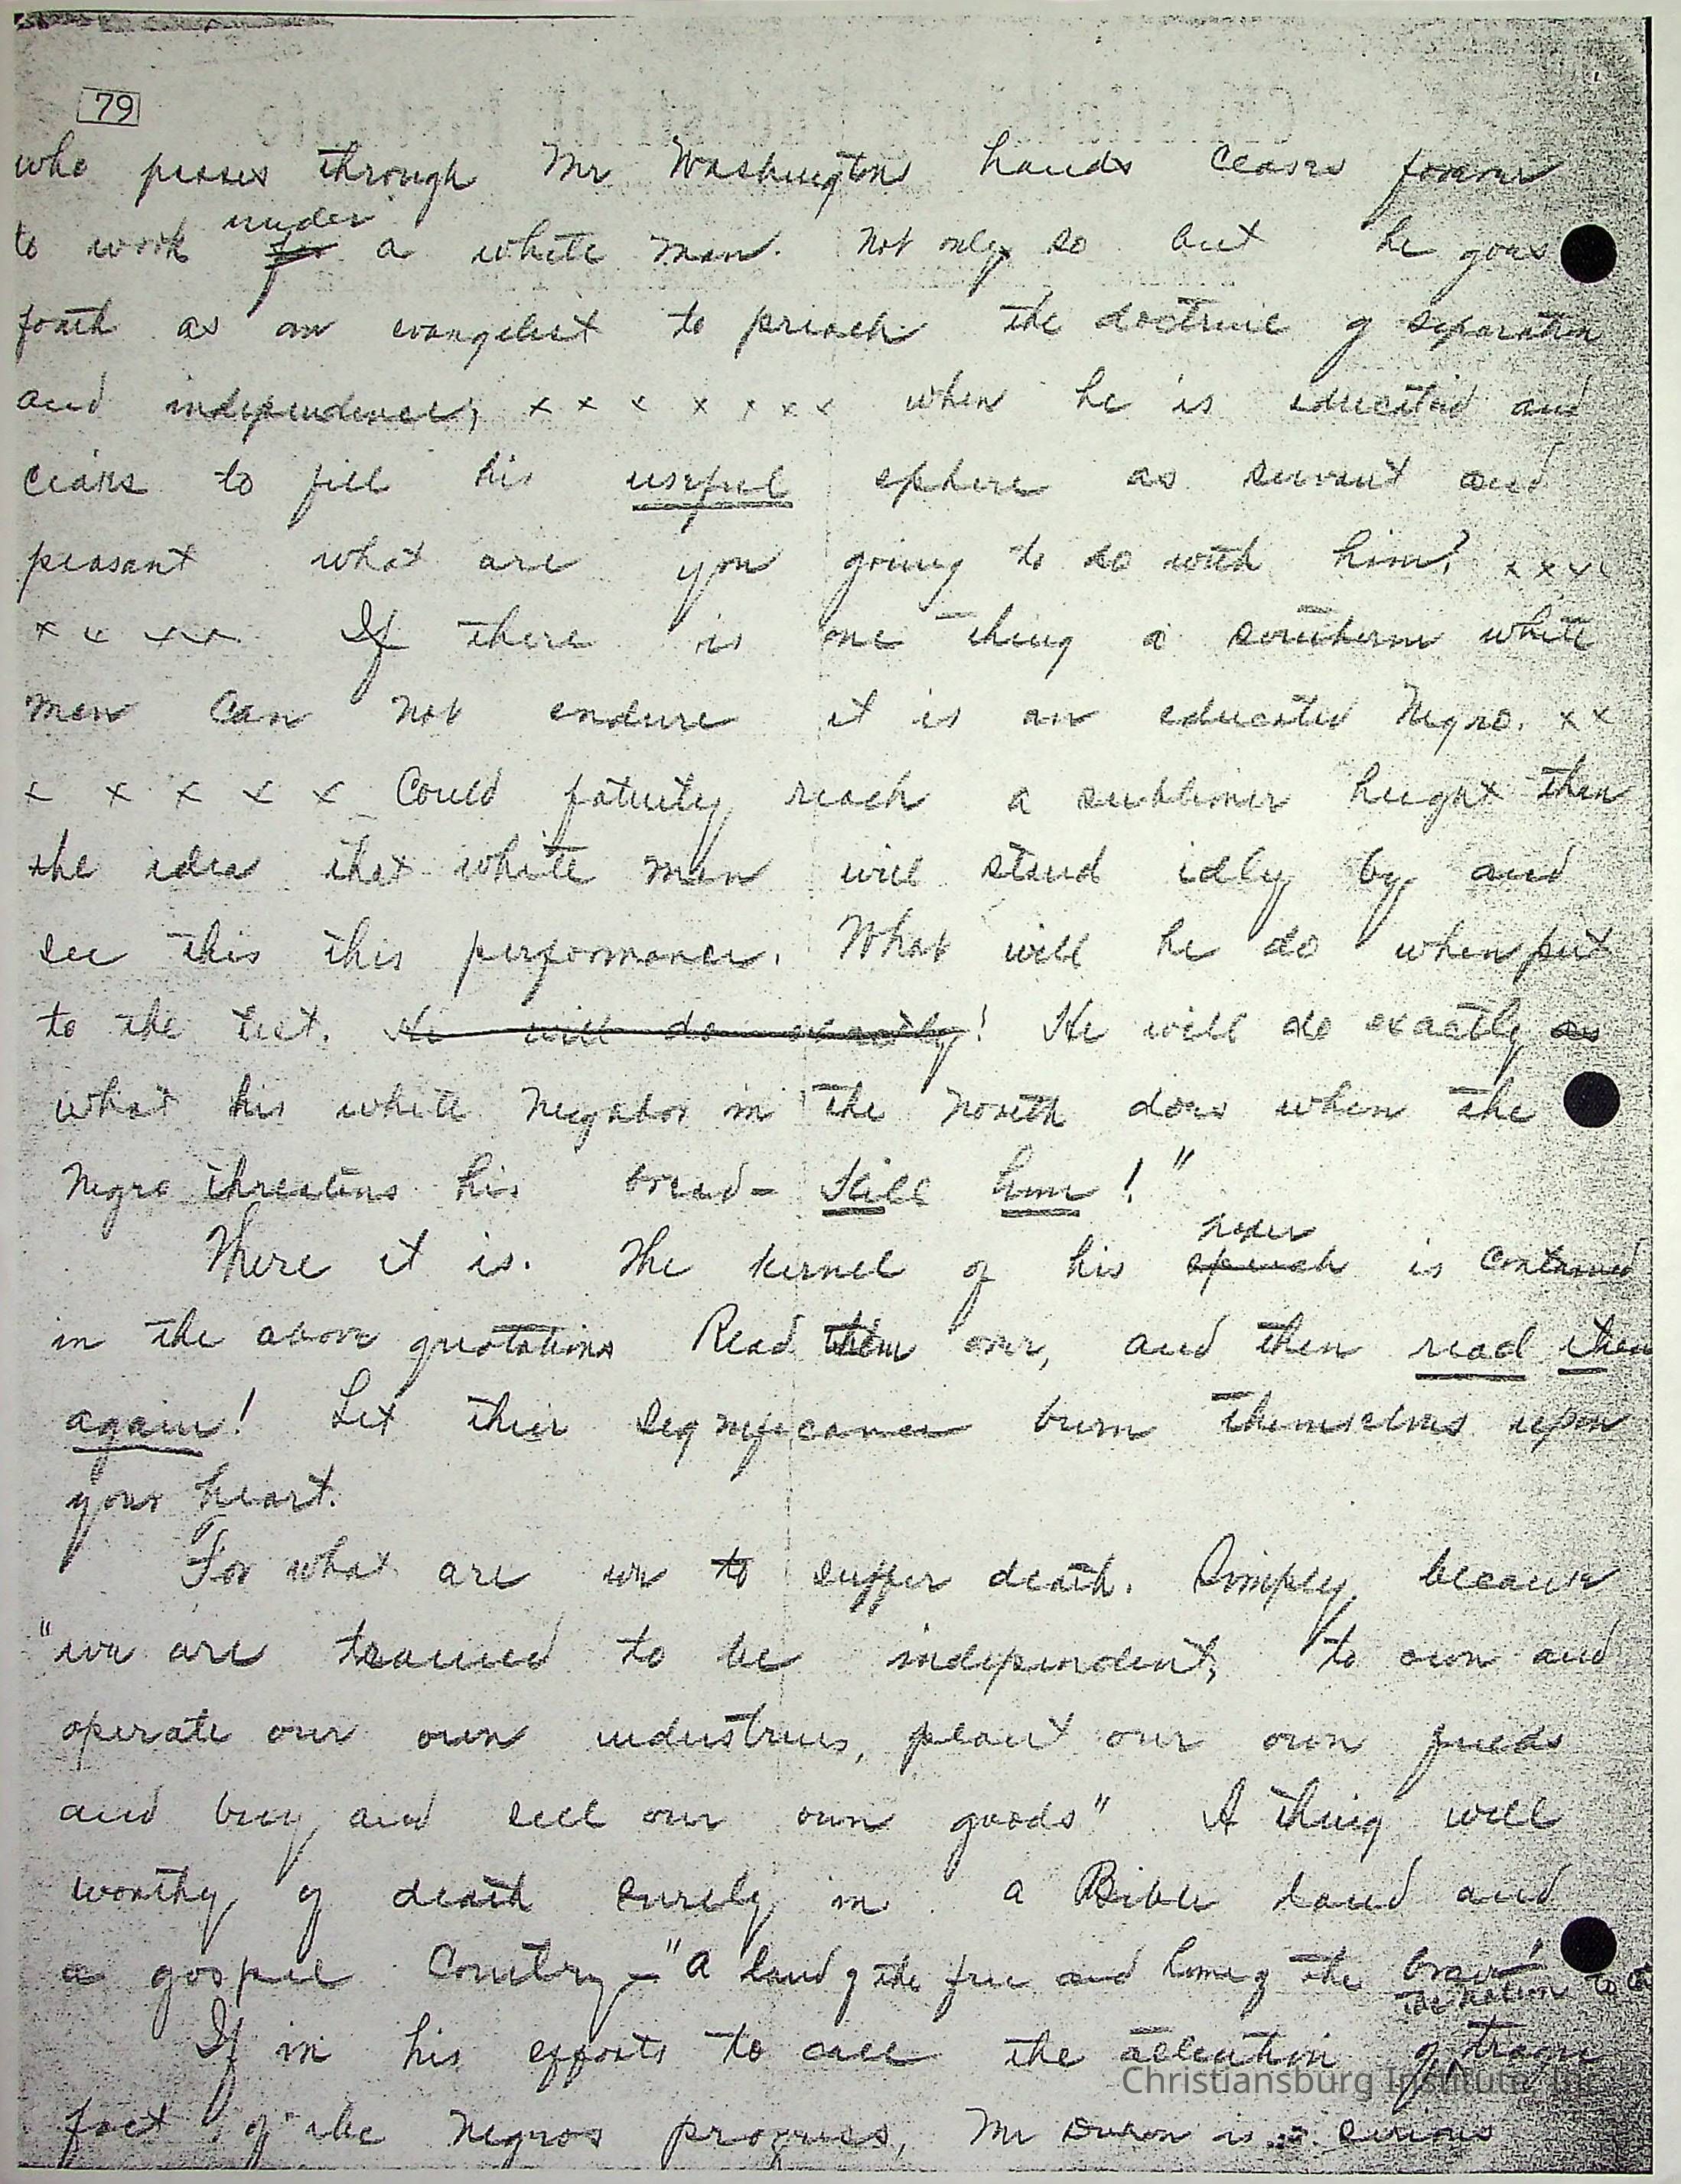 79
who passes through Mr Washingtons hands ceases forever
under
to work for a white man. Not only so but he goes
forth as an evangelist to preach the doctrine of separation
and independence; x x x x x x x when he is educated and
ceases to fill his useful sphere as servant and
peasant what are you going to do with him? x x x x
x x x x If there is one thing a southern white
man can not endure it is an educated Negro. x x
x x x x x Could fatuity reach a sublimer height than
the idea that white man will stand idly by and
see this this performance. What will he do when put
to the test. He will do exactly! He will do exactly as
what his white neighbor in the North does when the
Negro threatens his bread- Kill him!"
paper
There it is. The kernel of his speech is contained
in the above quotations Read them over, and then read them
again! Let their significance burn themselves upon
your heart.
For what are we to suffer death. Simply because
"we are trained to be independent, to own and
operate our own industries, plant our own fields
and buy and sell our own goods" A thing well
worthy of death surely in a Bible land and
a gospel Country - "A land of the free and home of the brave"
the nation to the
If in his efforts to call the attention of
fact of the Negros progress, Mr Dixon is serious
Christiansburg Institute, Inc.